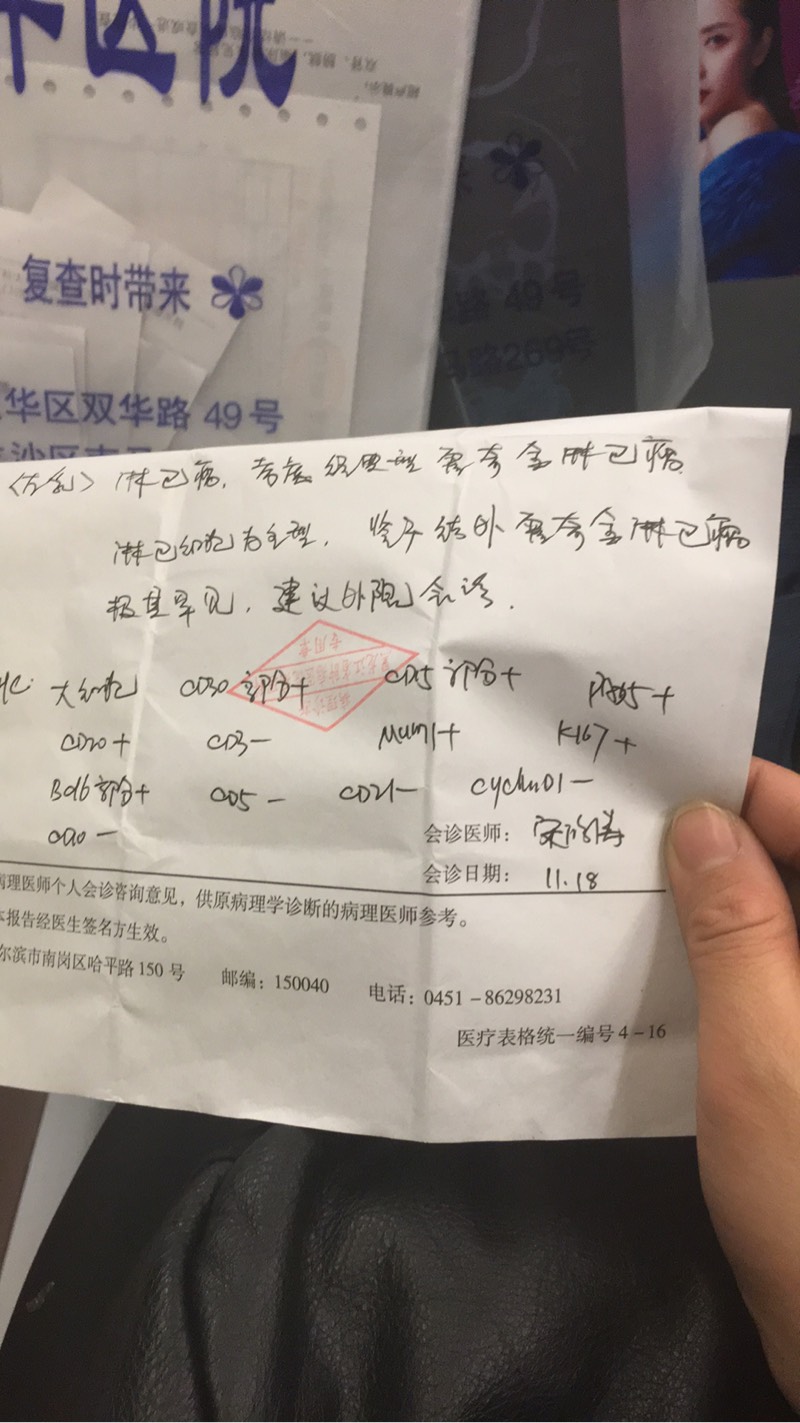 华医院
复查时带来
华区双华路 49号
路 49号
马路269号
<左乳> 淋巴瘤, 考虑 经典型 霍奇金淋巴瘤
淋巴细胞为主型, 鉴于结外霍奇金淋巴瘤
极其罕见, 建议外院会诊.
大细胞 CD30 部分+ CD15 部分+ PAX5+
CD20+ CD3- Mum1+ Ki67+
Bcl6部分+ CD5- CD21- CyclinD1-
CD10-
会诊医师:
会诊日期: 11.18
病理医师个人会诊咨询意见，供原病理学诊断的病理医师参考。
本报告经医生签名方生效。
尔滨市南岗区哈平路150号 邮编：150040 电话：0451-86298231
医疗表格统一编号4-16